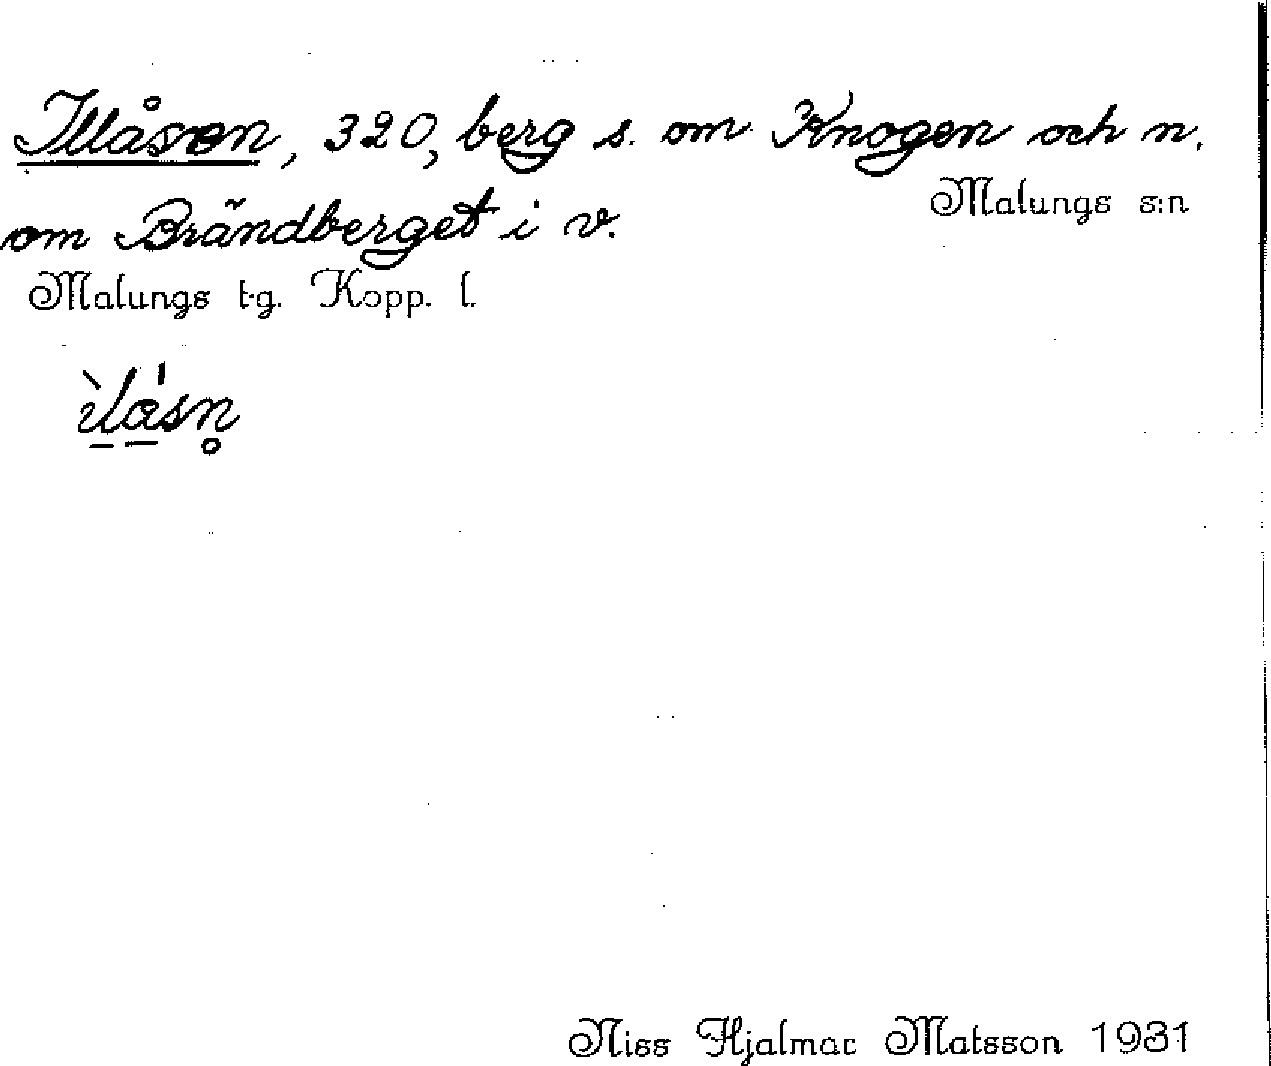 Illåsen, 320, berg s. om Knogen och n.
Malungs s:n
om Brändberget i v.
Malungs t-g. Kopp. l.
ìlásn̥
Niss Hjalmar Matsson 1931